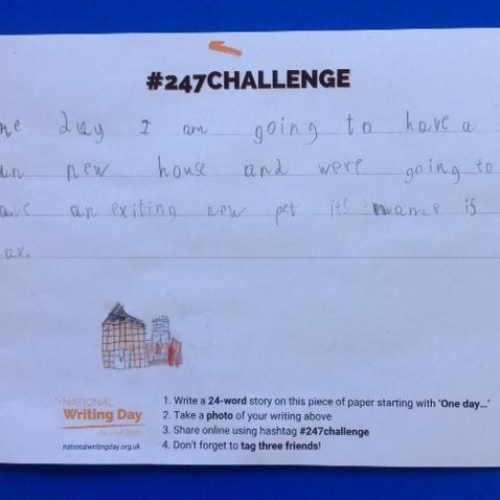 #247CHALLENGE
ne day I am going to have a
un new house and were going to
ave an exiting new pet its name is
ax.
NATIONAL
Writing Day
nationalwritingday.org.uk
1. Write a 24-word story on this piece of paper starting with 'One day...'
2. Take a photo of your writing above
3. Share online using hashtag #247challenge
4. Don't forget to tag three friends!